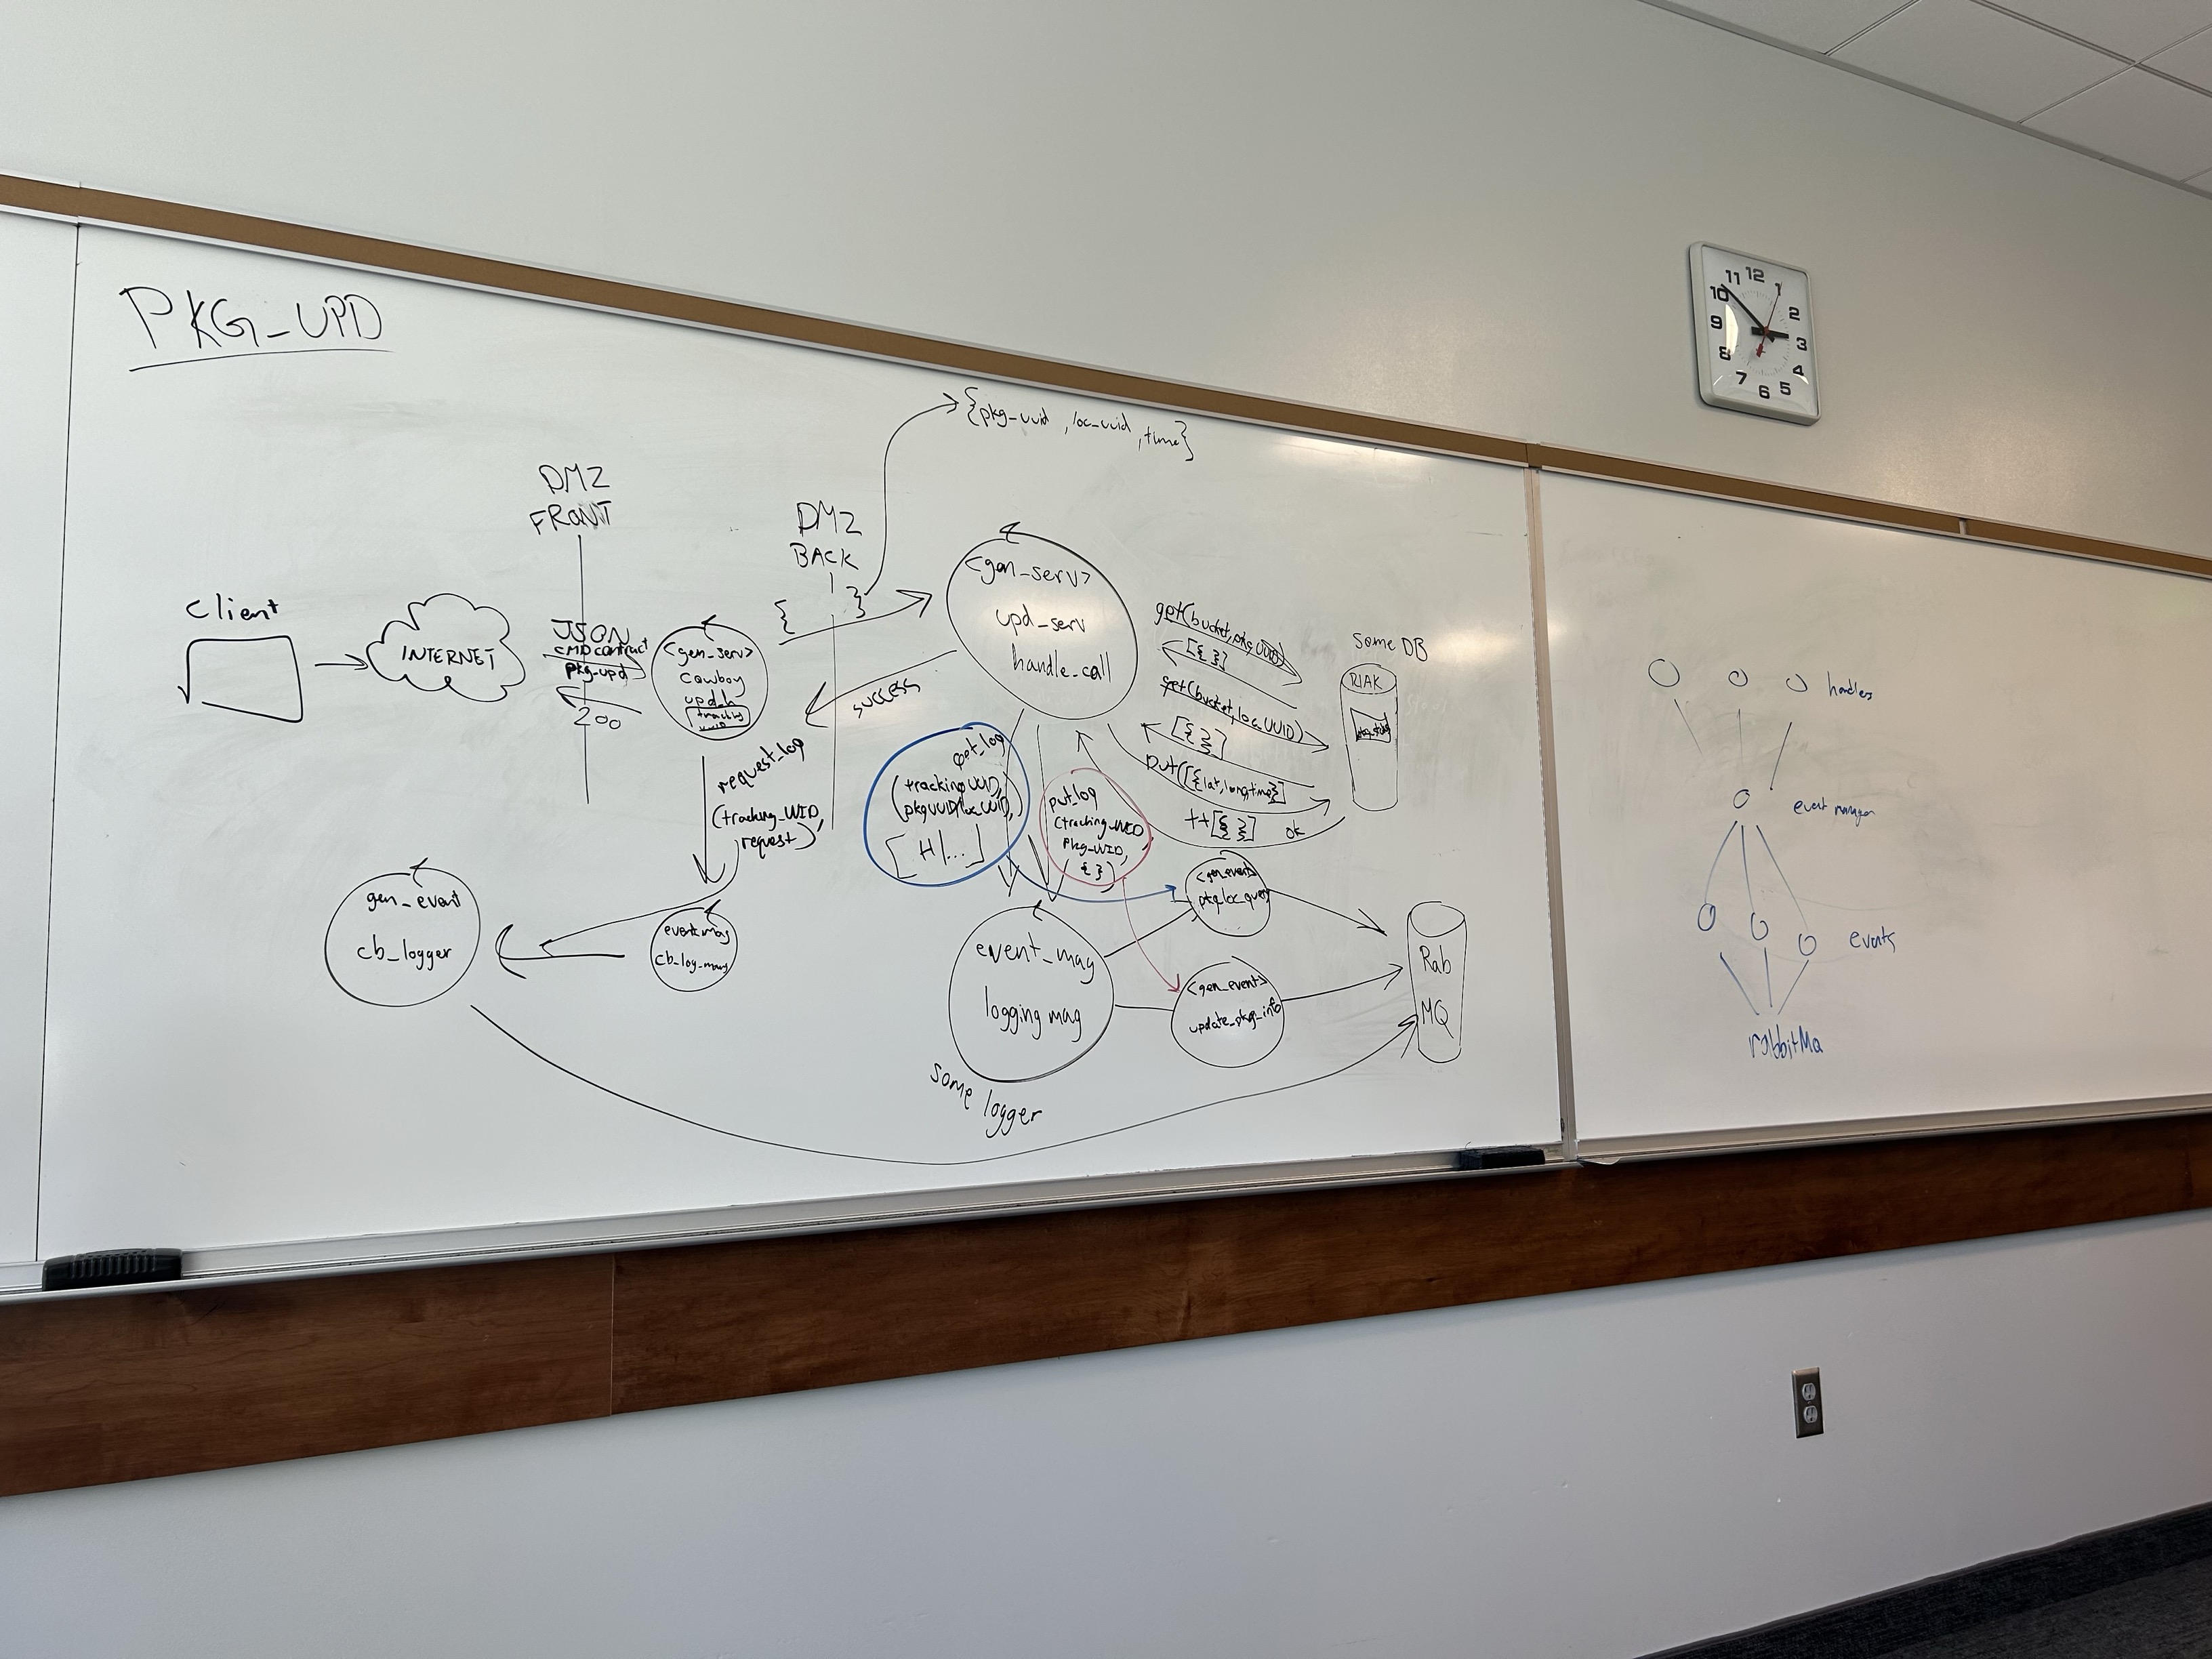 PKG_UPD
{pkg-uuid, loc_uuid, time}
DMZ
FRONT
DMZ
BACK
{ }
Client
INTERNET
JSON
CMD contract
pkg-upd
200
<gen_serv>
cowboy
upd_h
tracking
UUID
<gen_serv>
upd_serv
handle_call
success
get(bucket, pkgUUID)
[{ }]
get(bucket, loc_UUID)
[{ }]
put([{lat, long, time}]
++[{ }]
ok
Some DB
RIAK
request_log
(tracking_UUID,
request)
get_log
(trackingUUID,
pkgUUID/locUUID,
[H|...]
put_log
(tracking_UUID
pkg_UUID,
{ })
gen_event
cb_logger
event mag
cb_log_mag
event_mag
logging mag
some logger
<gen_event>
pkg_loc_query
<gen_event>
update_pkg_info
Rab
MQ
12
1
2
3
4
5
6
7
8
9
10
11
handlers
event manager
events
rabbitMq